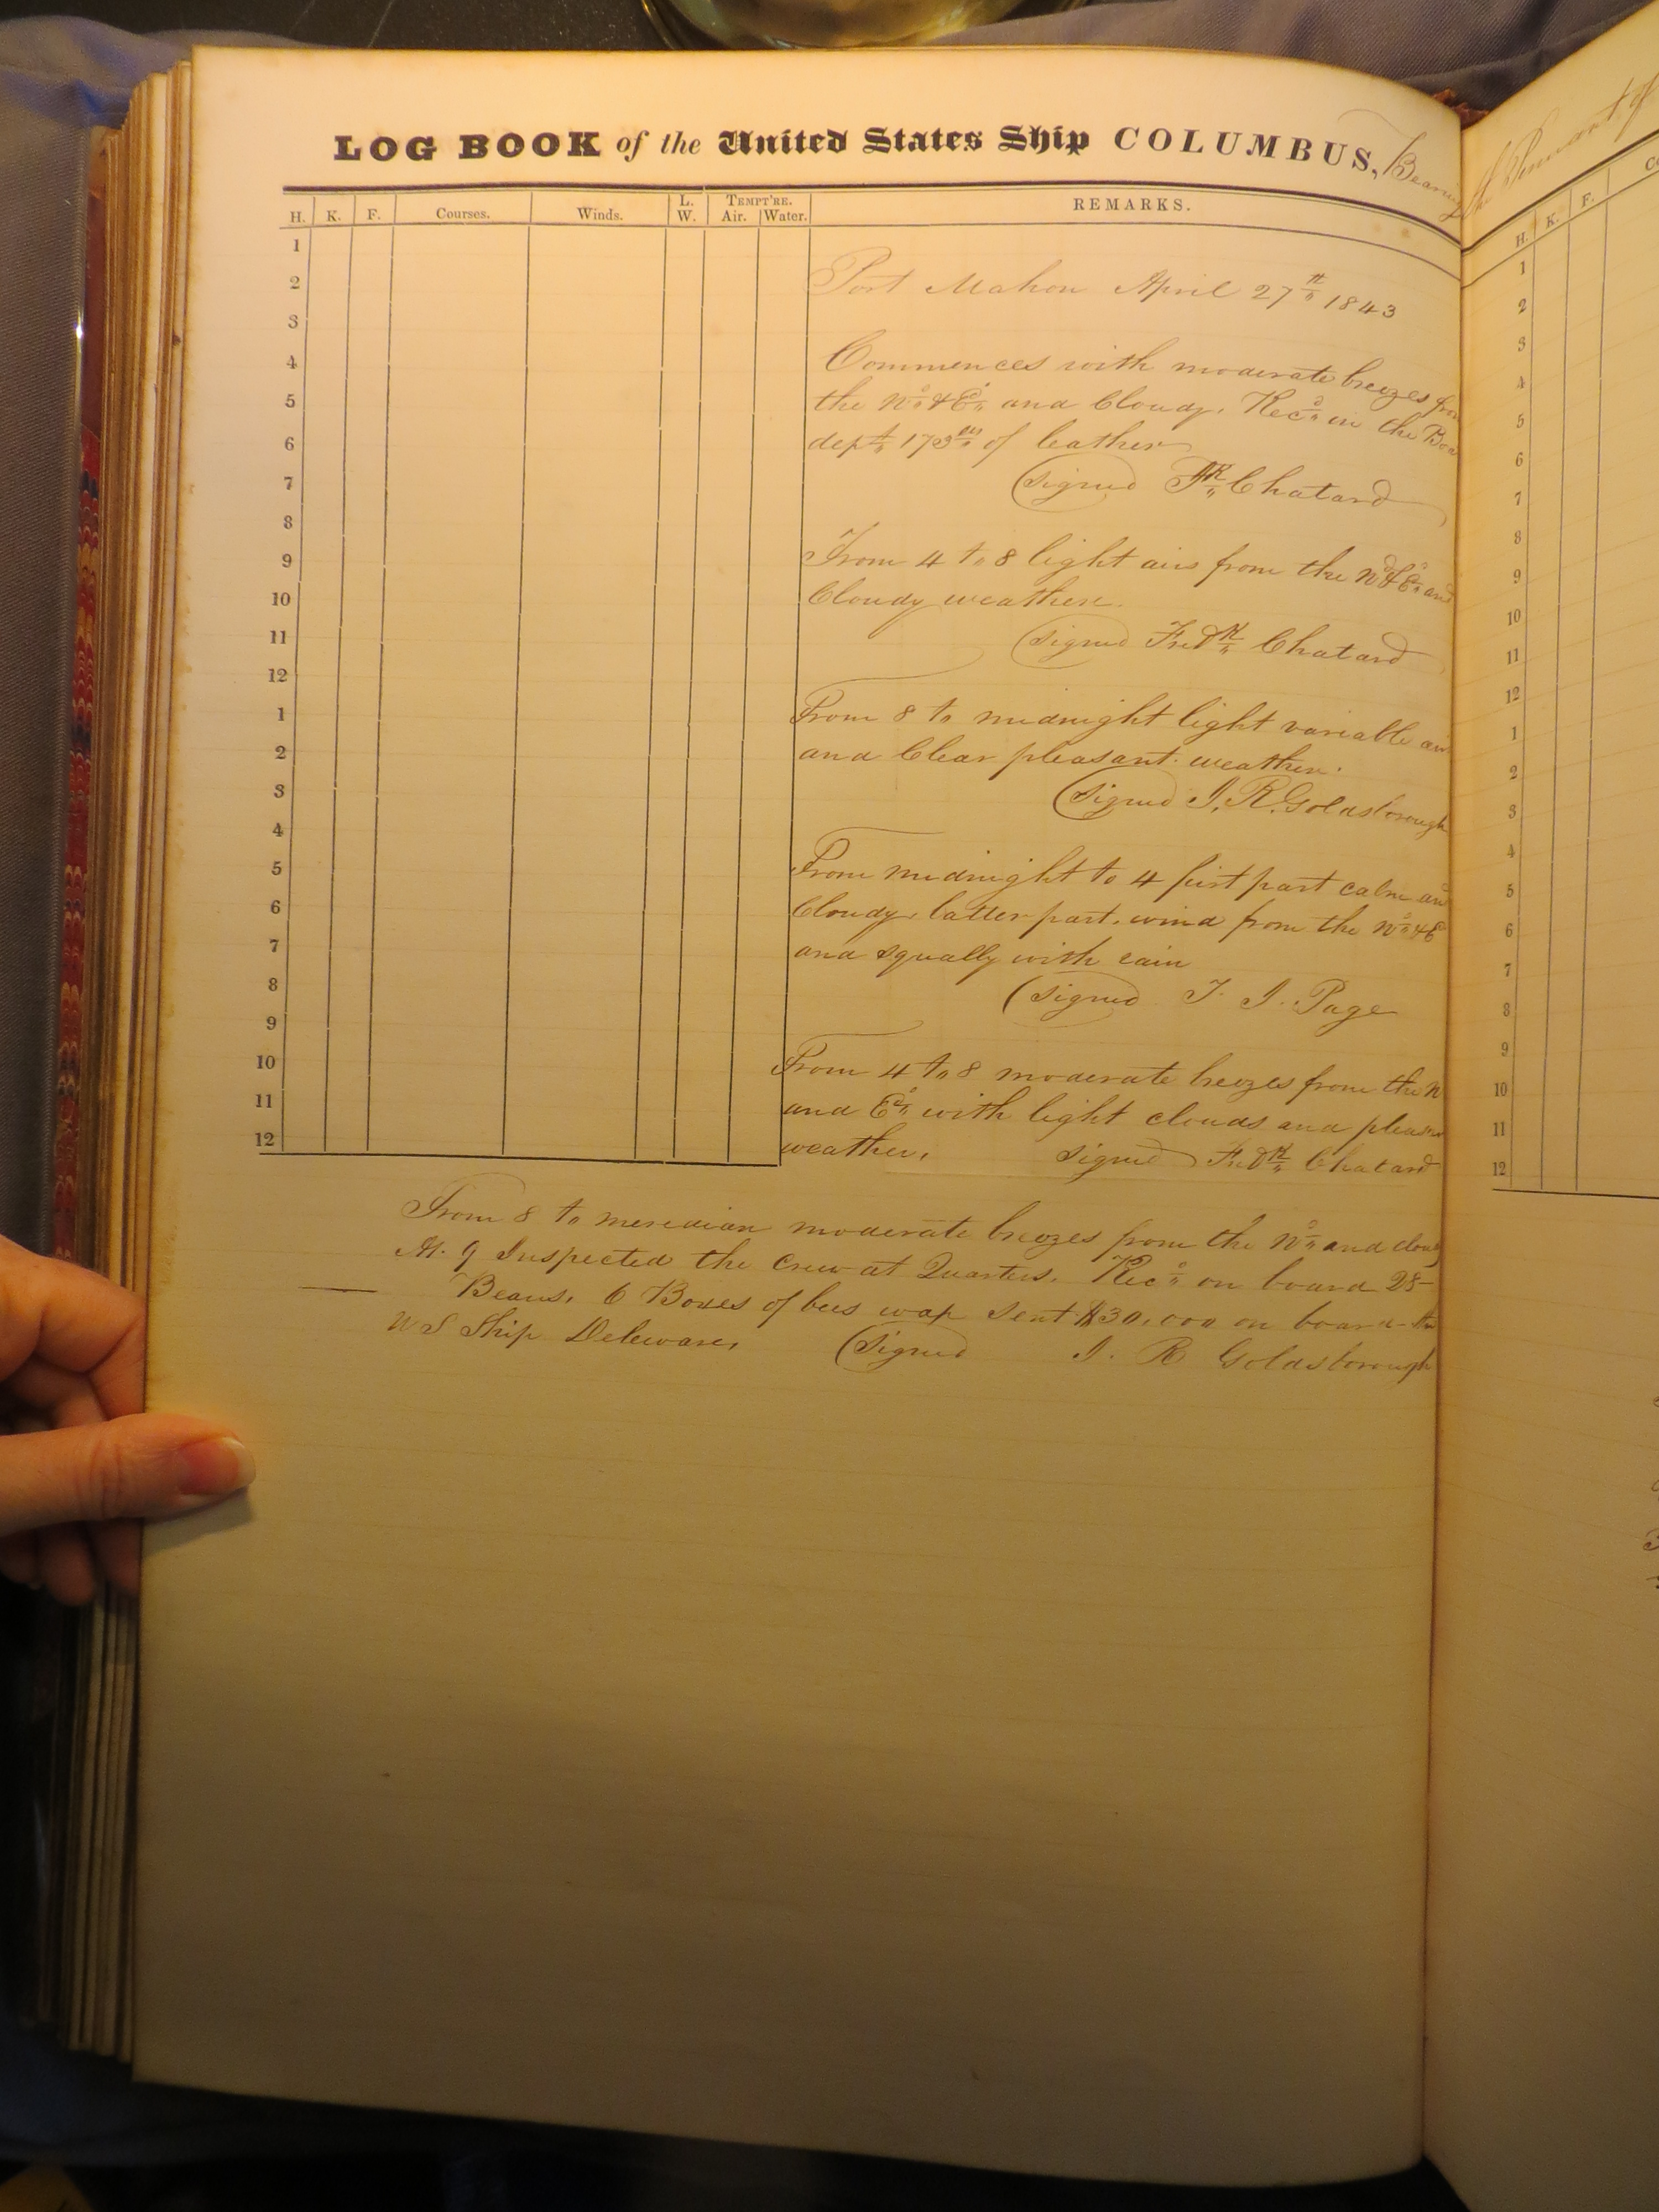 LOG BOOK of the United States Ship COLUMBUS, Bearing
H. K. F. Courses. Winds. L. W. TEMPT'RE. Air. Water. REMARKS.
1
2
3
4
5
6
7
8
9
10
11
12
1
2
3
4
5
6
7
8
9
10
11
12
Port Mahon April 27th 1843
Commences with moderate breezes from
the Nd & Ed and Cloudy. Recd in the
dept of leather
(Signed Fk Chatard
From 4 to 8 light airs from the Nd & Ed and
Cloudy weather.
(Signed Fredk Chatard
From 8 to midnight light variable air
and Clear pleasant weather.
(Signed J. R. Goldsborough
From midnight to 4 first part calm and
Cloudy, latter part, wind from the Nd & E
and squally with rain
(Signed T. J. Page
From 4 to 8 moderate breezes from the N
and Ed with light clouds and
weather, Signed Fredk Chatard
From 8 to meridian moderate breezes from the Nd and
At 9 Inspected the crew at Quarters. Recd on board 28
Beans, 6 Boxes of bees wax sent $30,000 on board the
U S Ship Deleware, (Signed J. R Goldsborough
the Pennant of
H. K. F.
1
2
3
4
5
6
7
8
9
10
11
12
1
2
3
4
5
6
7
8
9
10
11
12